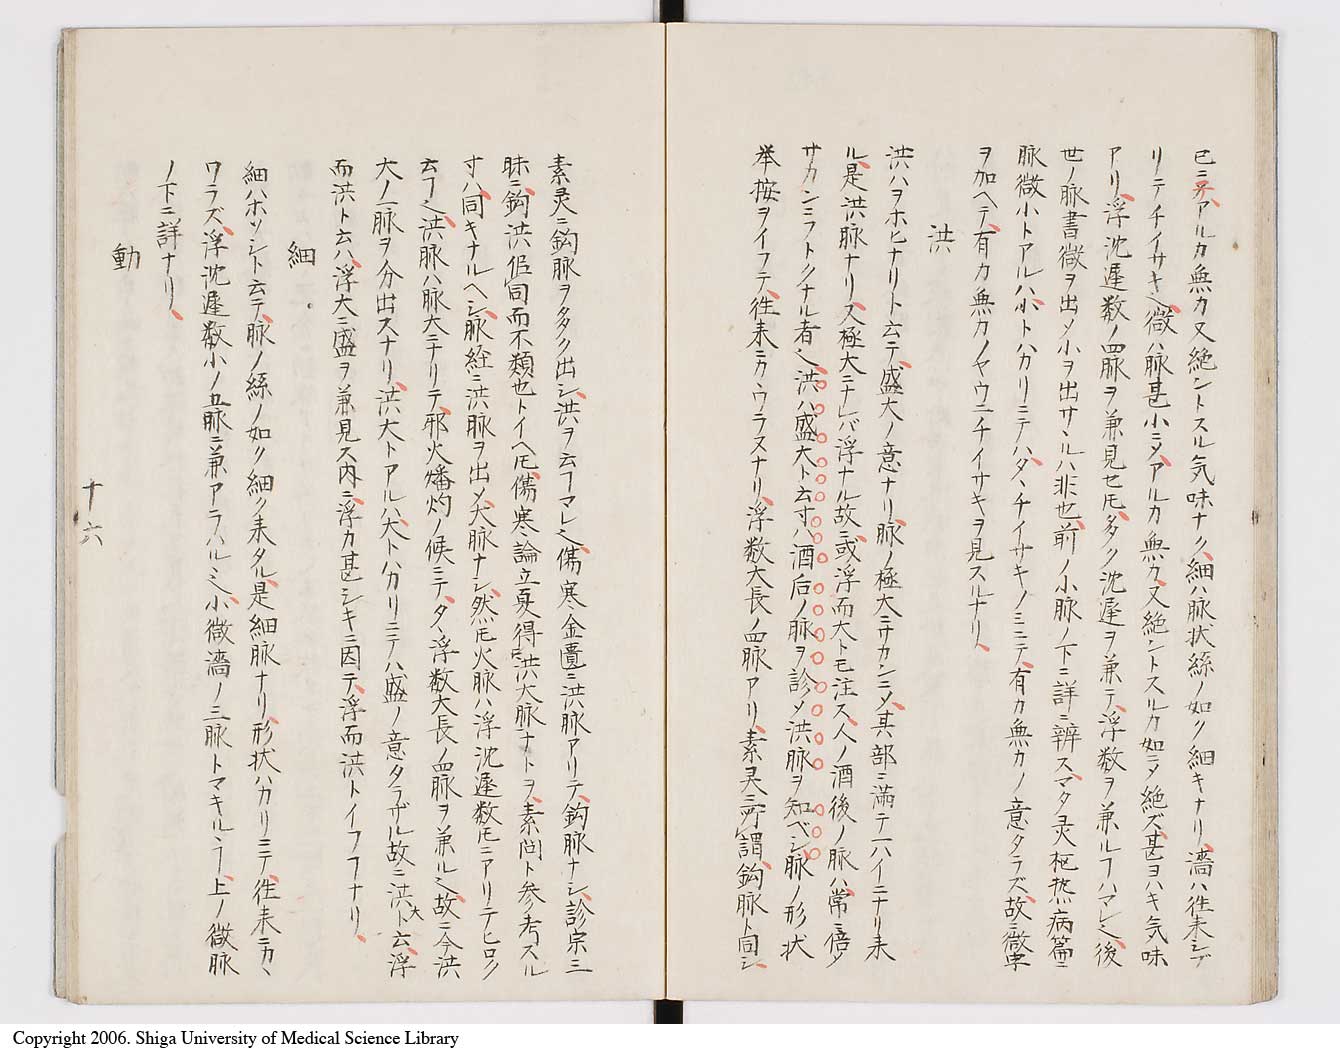 ニアルカ無カ又絶ントスル気味ナク細ハ脉状絲ノ如ク細キナリ濇ハ徃来シブ
リテチイサキ也微ハ脉甚小ニメアルカ無カ又絶ントスルカ如ニメ絶ズ甚ヨハキ気味
アリ浮沈遲数ノ四脉ヲ兼見セ𪜈多ク沈遲ヲ兼テ浮数ヲ兼ルフハマレ也後
世ノ脉書微ヲ出メ小ヲ出サヽルハ非也前ノ小脉ノ下ニ詳ニ辨スマタ灵枢热病篇ニ
脉微小トアルハ小トハカリニテハタヽチイサキノミニテ有カ無カノ意タラズ故ニ微字
ヲ加ヘテ有カ無カノヤウニチイサキヲ見スルナリ
洪
洪ハヲホヒナリト云テ盛大ノ意ナリ脉ノ極大ニサカンニメ其部ニ満テ一ハイニナリ来
ル是洪脉ナリ又極大ニナレバ浮ナル故ニ或浮而大トモ注ス人ノ酒後ノ脉ハ常ニ倍メ
サカンニフトクナル者也洪ハ盛大ト云寸ハ酒后ノ脉ヲ診メ洪脉ヲ知ベシ脉ノ形状
举按ヲイフテ徃来ニカヽワラスナリ浮数大長ノ四脉アリ素灵ニ所謂鈎脉ト同シ
素灵ニ鈎脉ヲ多ク出シ洪ヲ云フマレ也傷寒金匱ニ洪脉アリテ鈎脉ナシ診宗三
昧ニ鈎洪似同而不類也トイヘ𪜈傷寒論立夏得洪大脉ナトヲ素問ト参考スル
寸ハ同キナルヘシ脉経ニ洪脉ヲ出メ大脉ナシ然𪜈火脉ハ浮沈遲数𪜈ニアリテヒロク
云フ也洪脉ハ脉大ナリテ邪火燔灼ノ候ニテタヽ浮数大長ノ四脉ヲ兼ル也故ニ今洪
大ノ一脉ヲ分出スナリ洪大トアルハ大トハカリニテハ盛ノ意タラザル故ニ洪大ト云浮
而洪ト云ハ浮大ニ盛ヲ兼見ス内ニ浮カ甚シキニ因テ浮而洪トイフフナリ
細
細ハホソシト云テ脉ノ絲ノ如ク細ク来タル是細脉ナリ形状ハカリニテ徃来ニカヽ
ワラズ浮沈遲数小ノ五脉ニ兼アラハルヽ也小微濇ノ三脉トマキルヽフ上ノ微脉
ノ下ニ詳ナリ
動
十六
Copyright 2006. Shiga University of Medical Science Library